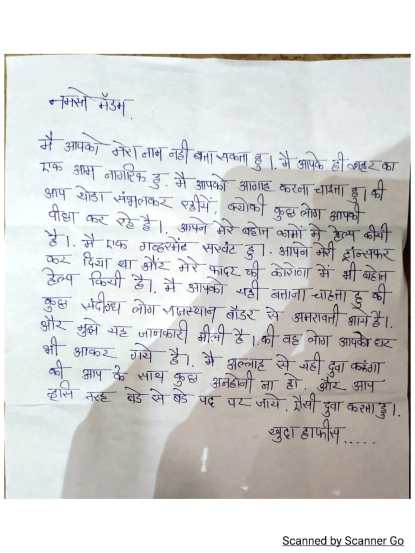 नमस्ते मॅडम,
मै आपको मेरा नाम नही बता सकता हु। मै आपके ही शहर का
एक आम नागरिक हु. मै आपको आगाह करना चाहता हु। की
आप थोडा संभलकर रहीये. क्योकी कुछ लोग आपका
पीछा कर रहे है।, आपने मेरे बहोत कामो मे हेल्प कीयी
है।. मै एक गव्हरमेंट सरवंट हु।. आपने मेरी ट्रान्सफर
कर दिया था और मेरे फादर की कोरोना मे भी बहोत
हेल्प कियी है।. मै आपको यही बताना चाहता हु की
कुछ संदीग्ध लोग राजस्थान बॉडर से अमरावती आये है।.
और मुझे यह जानकारी मीली है।.की वह लोग आपके घर
भी आकर गये है।. मै अल्लाह से यही दुवा करुंगा
की आप के साथ कुछ अनहोनी ना हो. और आप
इसि तरह बडे से बडे पद पर जाये. ऐसी दुवा करता हु।.
खुदा हाफीस.....
Scanned by Scanner Go